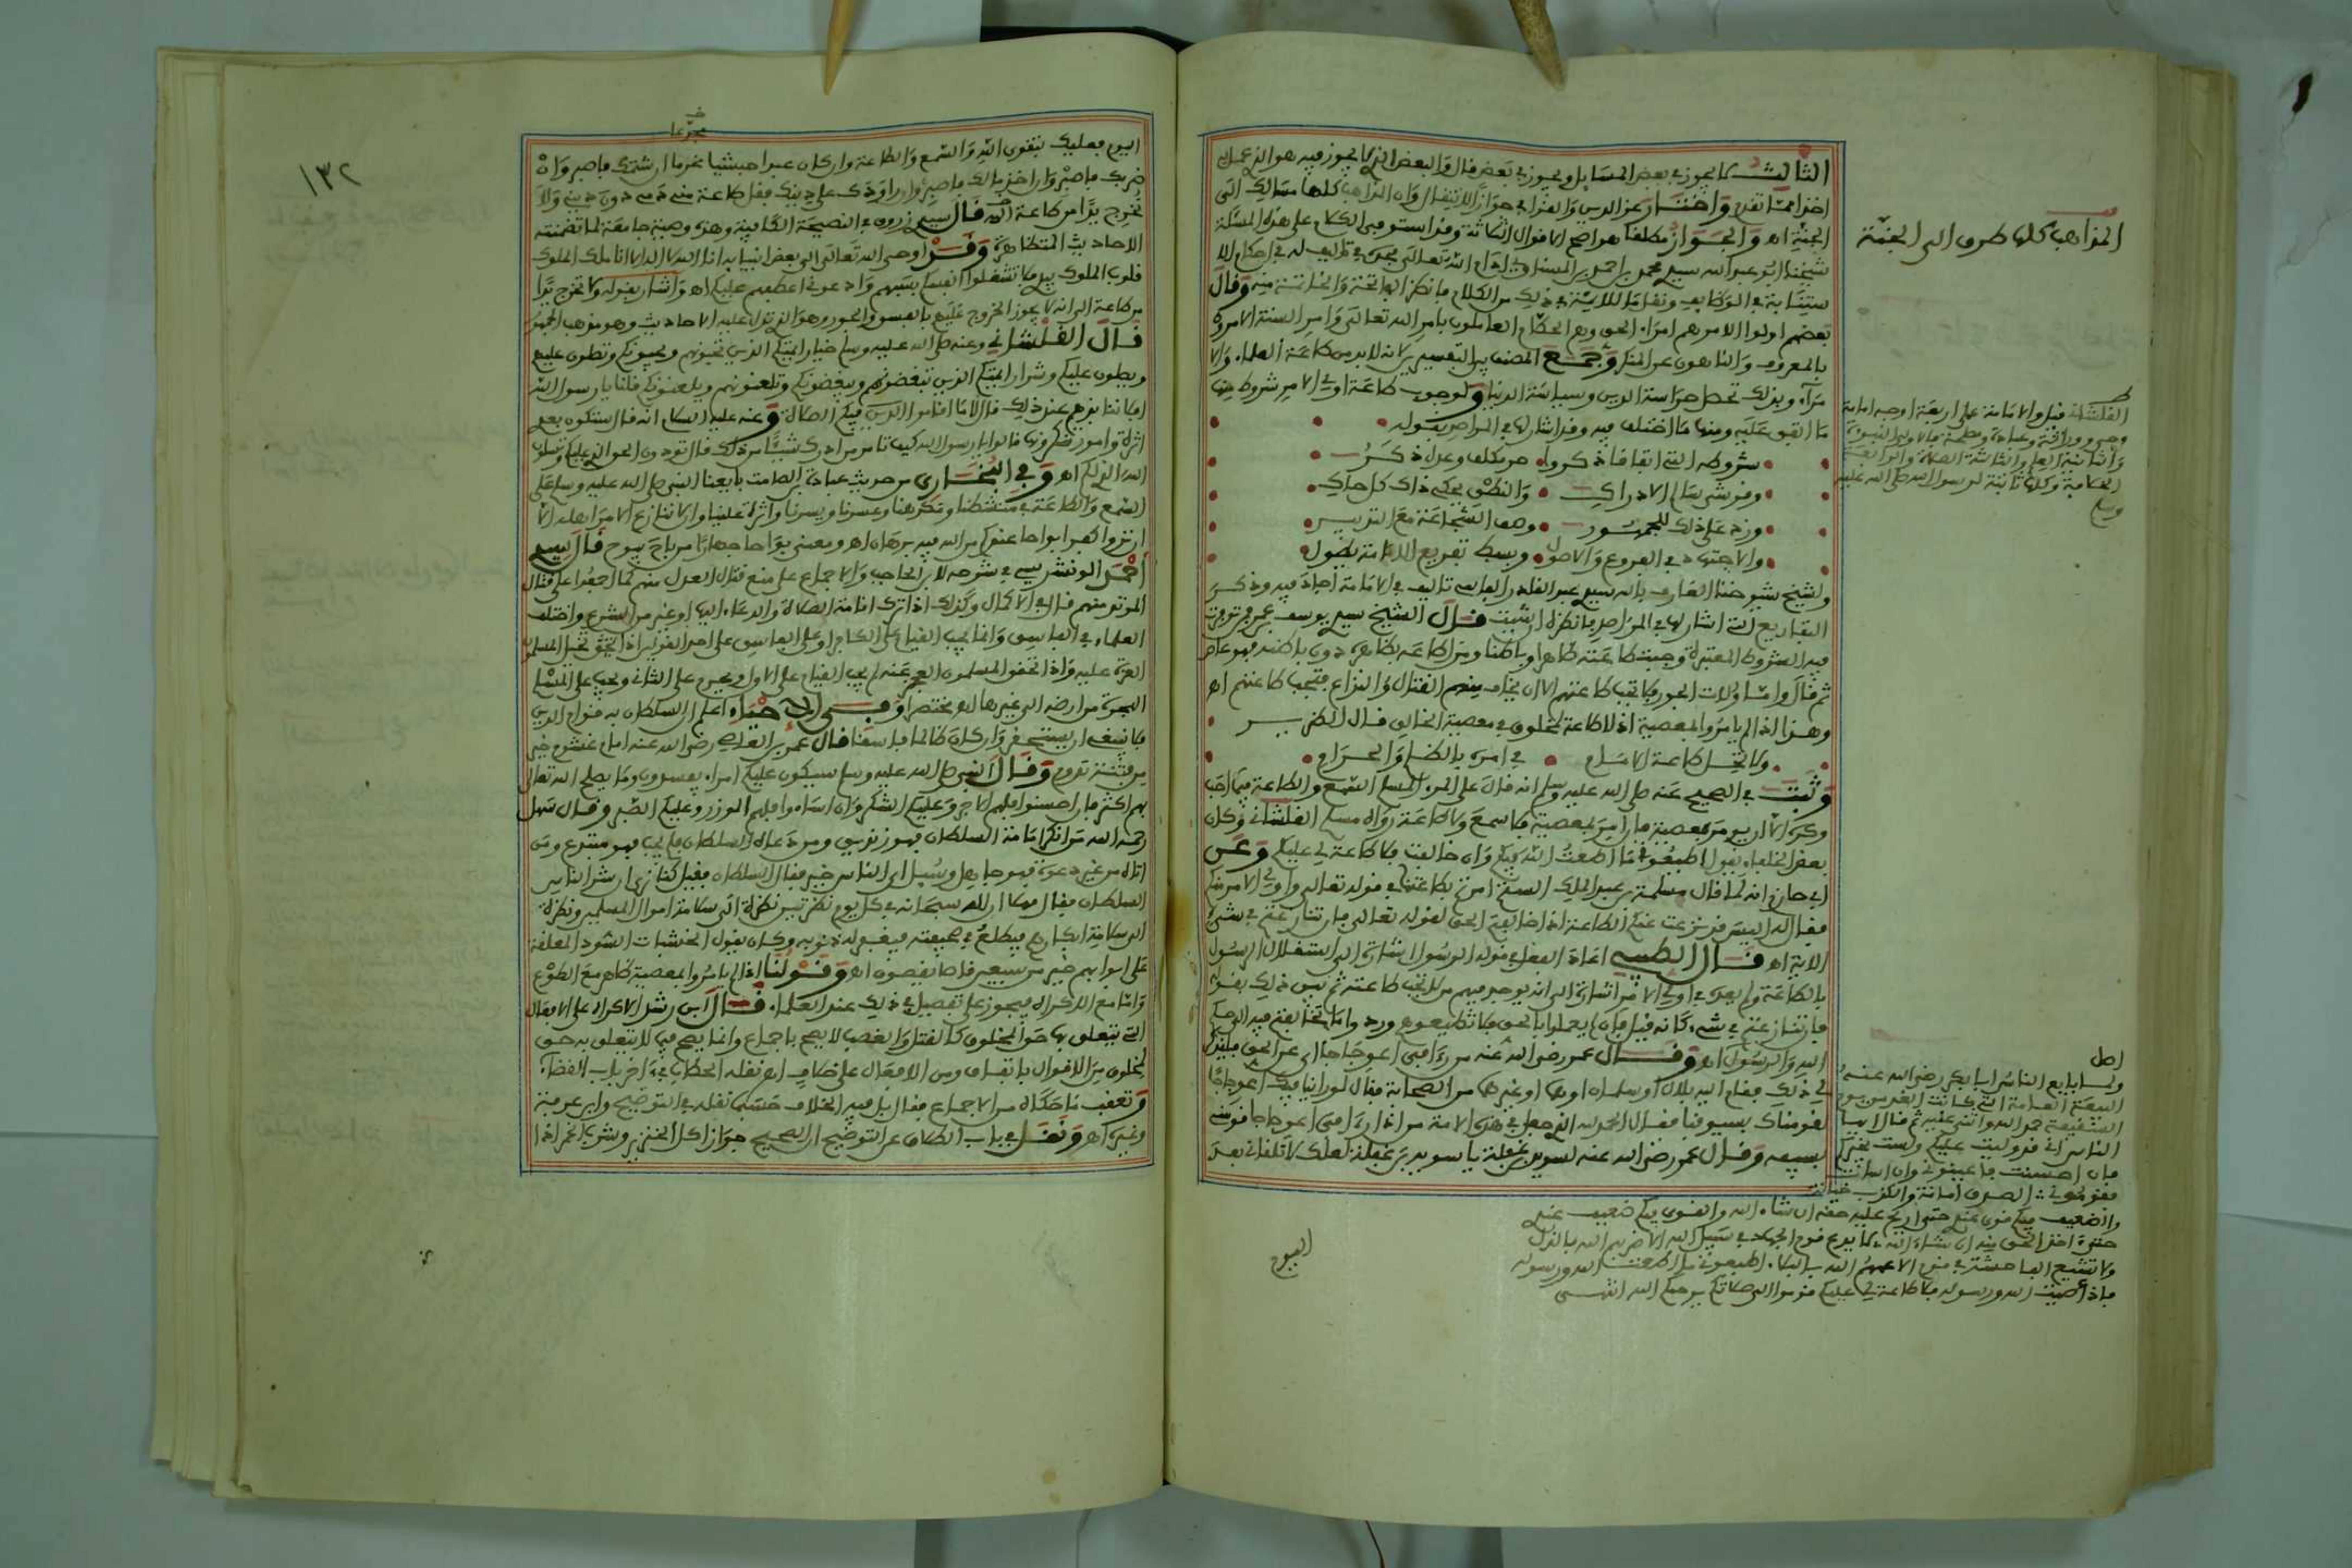 الثالث كا يجوز في بعض المسايل ويجوز في بعض قال والبعض الذي لا يجوز فيه هو الذي عمل به
الجنة اه والجواز مطلقا هو اصح الاقوال الثلاثة وقد استوفى الكلام على هذه المسئلة
بعضهم اولوا الامر هم امراء الحق وهم الحكام العاملون بامر الله تعالى وامر السنة الامرون
بالمعروف والناهون عن المنكر وجمع المصنف بين التفسيرين لانه لابد من طاعة العلماء والا
مراء وبذلك تحصل حراسة الدين وسياسة الدنيا ولوجوب طاعة اولي الامر شروط منها
ما اتفق عليه ومنها ما اختلف فيه وقد اشار لها في المراصد بقوله
شروطه التي اتفاقا ذكروا حر مكلف وعدل ذكر
وقرشي سالم الادراك والنطق يحكي ذاك كل حاك
وزد على ذلك للجمهور وصف الشجاعة مع التدبير
والاجتهاد في الفروع والاصول وبسط تفريع الامامة يطول
ولشيخ شيوخنا العارف بالله سيدي عبد القادر الفاسي تاليف في الامامة اجاد فيه وذكر
التفاريع التي اشار لها في المراصد فانظره ان شئت قال الشيخ سيدي يوسف بن عمر فمن توفرت
فيه الشروط المعتبرة وجبت طاعته ظاهرا وباطنا ومن اطاعه ظاهرا دون باطنه فهو عاص
ثم قال واما ولات الجور فلا تجب طاعتهم الا ان يخاف منهم القتال والنزاع فتجب طاعتهم اه
وهذا اذا لم يامر وا بالمعصية اذ لا طاعة لمخلوق في معصية الخالق قال
ولا تحل طاعة الامام في امره بالظلم والحرام
وثبت في الصحيح عنه صلى الله عليه وسلم انه قال على المرء المسلم السمع والطاعة فيما احب
وكره الا ان يومر بمعصية فان امر بمعصية فلا سمع ولا طاعة رواه مسلم القلشاني وكان
بعض الخلفاء يقول اطيعوني ما اطعت الله فيكم وان خالفت فلا طاعة لي عليكم وعن
ابي حازم انه لما قال مسلمة بن عبد الملك الستم امرتم بطاعتنا في قوله تعالى واولي الامر منكم
فقال له اليس قد نزعت عنكم الطاعة اذا خالفتم الحق لقوله تعالى فان تنازعتم في شيء
الاية اه قال الطيبي اعاد الفعل في قوله الرسول اشارة الى استقلال الرسول
بالطاعة ولم يعده في اولي الامر اشارة الى انه يوجد فيهم من لا تجب طاعته ثم بين ذلك بقوله
فان تنازعتم في شيء كانه قيل فان لم يعملوا بالحق فلا تطيعوهم وردوا ما تخالفتم فيه الى حكم
الله والرسول اه وقال عمر رضي الله عنه من راى في اعوجاجا
في ذلك فقام اليه بلال او سلمان او غيرهما من الصحابة فقال لو راينا فيك اعوجاجا
لقومناك بسيوفنا فقال الحمد لله الذي جعل في هذه الامة من اذا راى في اعوجاجا قومني
بسيفه وقال عمر رضي الله عنه لسويد بن غفلة يا سويد بن غفلة لعلك لا تلقاني بعد
اليوم
المذاهب كلها طرق الى الجنة
القلشاني قيل والامامة على اربعة اوجه امامة
وحي ووراثة وعبادة ومصلحة فالاولى النبوءة
والثانية العلم والثالثة الصلاة والرابعة
الخلافة وكلها ثابتة لرسول الله صلى الله عليه
وسلم
اصل
ولما بايع الناس ابا بكر رضي الله عنه
البيعة العامة التي كانت الغد من يوم
السقيفة حمد الله واثنى عليه ثم قال ايها
الناس اني قد وليت عليكم ولست بخيركم
فان احسنت فاعينوني وان اسات
فقوموني الصدق امانة والكذب خيانة
والضعيف فيكم قوي عندي حتى اريح عليه حقه ان شاء الله والقوي فيكم ضعيف عندي
حتى اخذ الحق منه ان شاء الله لا يدع قوم الجهاد في سبيل الله الا ضربهم الله بالذل
ولا تشيع الفاحشة في قوم الا عمهم الله بالبلاء اطيعوني ما اطعت الله ورسوله
فاذا عصيت الله ورسوله فلا طاعة لي عليكم قوموا الى صلاتكم يرحمكم الله انتهى
١٣٢
اليوم فعليك بتقوى الله والسمع والطاعة وان كان عبدا حبشيا مجدعا ان شتمك فاصبر وان
ضربك فاصبر وان اخذ مالك فاصبر وان راودك على دينك فقل طاعة مني دمي دون ديني ولا
تخرج يدا من طاعة الله قال سيدي زروق في النصيحة الكافية وهذه وصية جامعة لما تضمنته
الاحاديث المتظاهرة وقد اوحى الله تعالى الى بعض انبيائه انا الله لا اله الا انا ملك الملوك
قلوب الملوك بيدي فلا تشغلوا انفسكم بسبهم وادعوني اعطفهم عليكم اه واشار بقوله ولا تخرج يدا
من طاعة الى انه لا يجوز الخروج عليهم بالفسق والجور وهو الذي تدل عليه الاحاديث وهو مذهب الجمهور
قال القلشاني وعنه صلى الله عليه وسلم خيار ايمتكم الذين تحبونهم ويحبونكم وتصلون عليهم
ويصلون عليكم وشرار ايمتكم الذين تبغضونهم ويبغضونكم وتلعنونهم ويلعنونكم قلنا يا رسول الله
افلا ننابذهم عند ذلك قال لا ما اقاموا فيكم الصلاة وعنه عليه السلام انه قال ستكون بعدي
اثرة وامور تنكرونها قالوا يا رسول الله كيف تامر من ادرك شيئا من ذلك قال تودون الحق الذي عليكم وتسالون
الله الذي لكم اه وفي البخاري من حديث عبادة بن الصامت بايعنا النبي صلى الله عليه وسلم على
السمع والطاعة في منشطنا ومكرهنا وعسرنا ويسرنا واثرة علينا وان لا ننازع الامر اهله الا
ان تروا كفرا بواحا عندكم من الله فيه برهان اه ومعنى بواحا جهارا من باح يبوح قال سيدي
احمد الونشريسي في شرحه لابن الحاجب والاجماع على منع قتال العدل منهم كما اجمعوا على قتال
المرتد منهم قال في الاكمال وكذلك اذا ترك اقامة الصلاة والدعاء اليها او غير من الشرع واختلف
العلماء في الفاسق وانما يجب القيام على الكافر
الهجرة من ارضه الى غيرها اه مختصرا وفي الاحياء اعلم ان السلطان به قوام الدين
فلا ينبغي ان يستحقر وان كان ظالما فاسقا قال عمرو بن العاص رضي الله عنه امام غشوم خير
من فتنة تدوم وقال النبي صلى الله عليه وسلم سيكون عليكم امراء يفسدون وما يصلح الله تعالى
بهم اكثر فان احسنوا فلهم الاجر وعليكم الشكر وان اساءوا فعليهم الوزر وعليكم الصبر وقال سهل
رحمه الله من انكر امامة السلطان فهو زنديق ومن دعاه السلطان فلم يجب فهو مبتدع ومن
اتاه من غير دعوة فهو جاهل وسئل اي الناس خير فقال السلطان فقيل كنا نرى ان شر الناس
السلطان فقال مهلا ان لله سبحانه في كل يوم نظرتين نظرة الى سلامة اموال المسلمين ونظرة
الى سلامة ابدانهم فيطلع في صحيفته فيغفر له ذنوبه وكان يقول الخشبات السود المعلقة
على ابوابهم خير من سبعين قاصا يقصون اه وقولنا اذا لم يامروا بمعصية ظاهر مع الطوع
واما مع الاكراه فيجوز على تفصيل في ذلك عند العلماء قال ابن رشد الاكراه على الافعال
التي يتعلق بها حق لمخلوق كالقتل والغصب لا يصح باجماع وانما يصح فيما لا يتعلق به حق
لمخلوق من الاقوال باتفاق ومن الافعال على خلاف اه نقله الحطاب في اخر باب القضاء
وتعقب ما حكاه من الاجماع فقال بل فيه الخلاف حسبما نقله في التوضيح وابن عرفة
وغيره اه ونقل في باب الطلاق عن التوضيح ان الصحيح جواز اكل الخنزير وشرب الخمر اذا